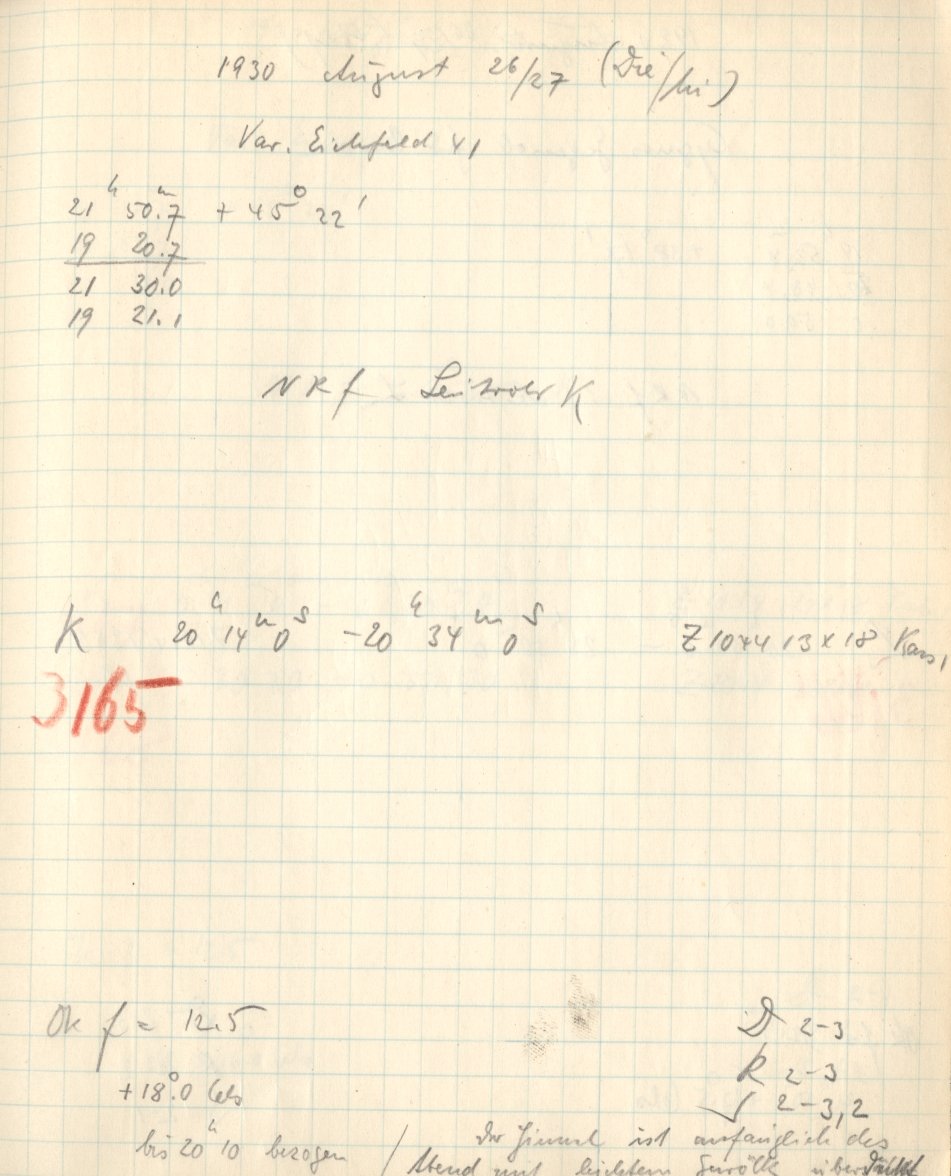 1930 August 26/27 (Die/Mi)
Var. Eichfeld 41
21ʰ 50.ᵐ7 + 45° 22'
19 20.7
21 30.0
19 21.1
NRf Leitrohr K
K 20ʰ 14ᵐ 0ˢ – 20ʰ 34ᵐ 0ˢ Z 1044 13 x 18 Kass,
3165
Ok f = 12.5
D 2-3
+18°.0 Cels
R 2-3
2-3,2
bis 20ʰ10 bezogen / Der Himmel ist anfänglich des
Abend mit leichtem Gewölk überdeckt